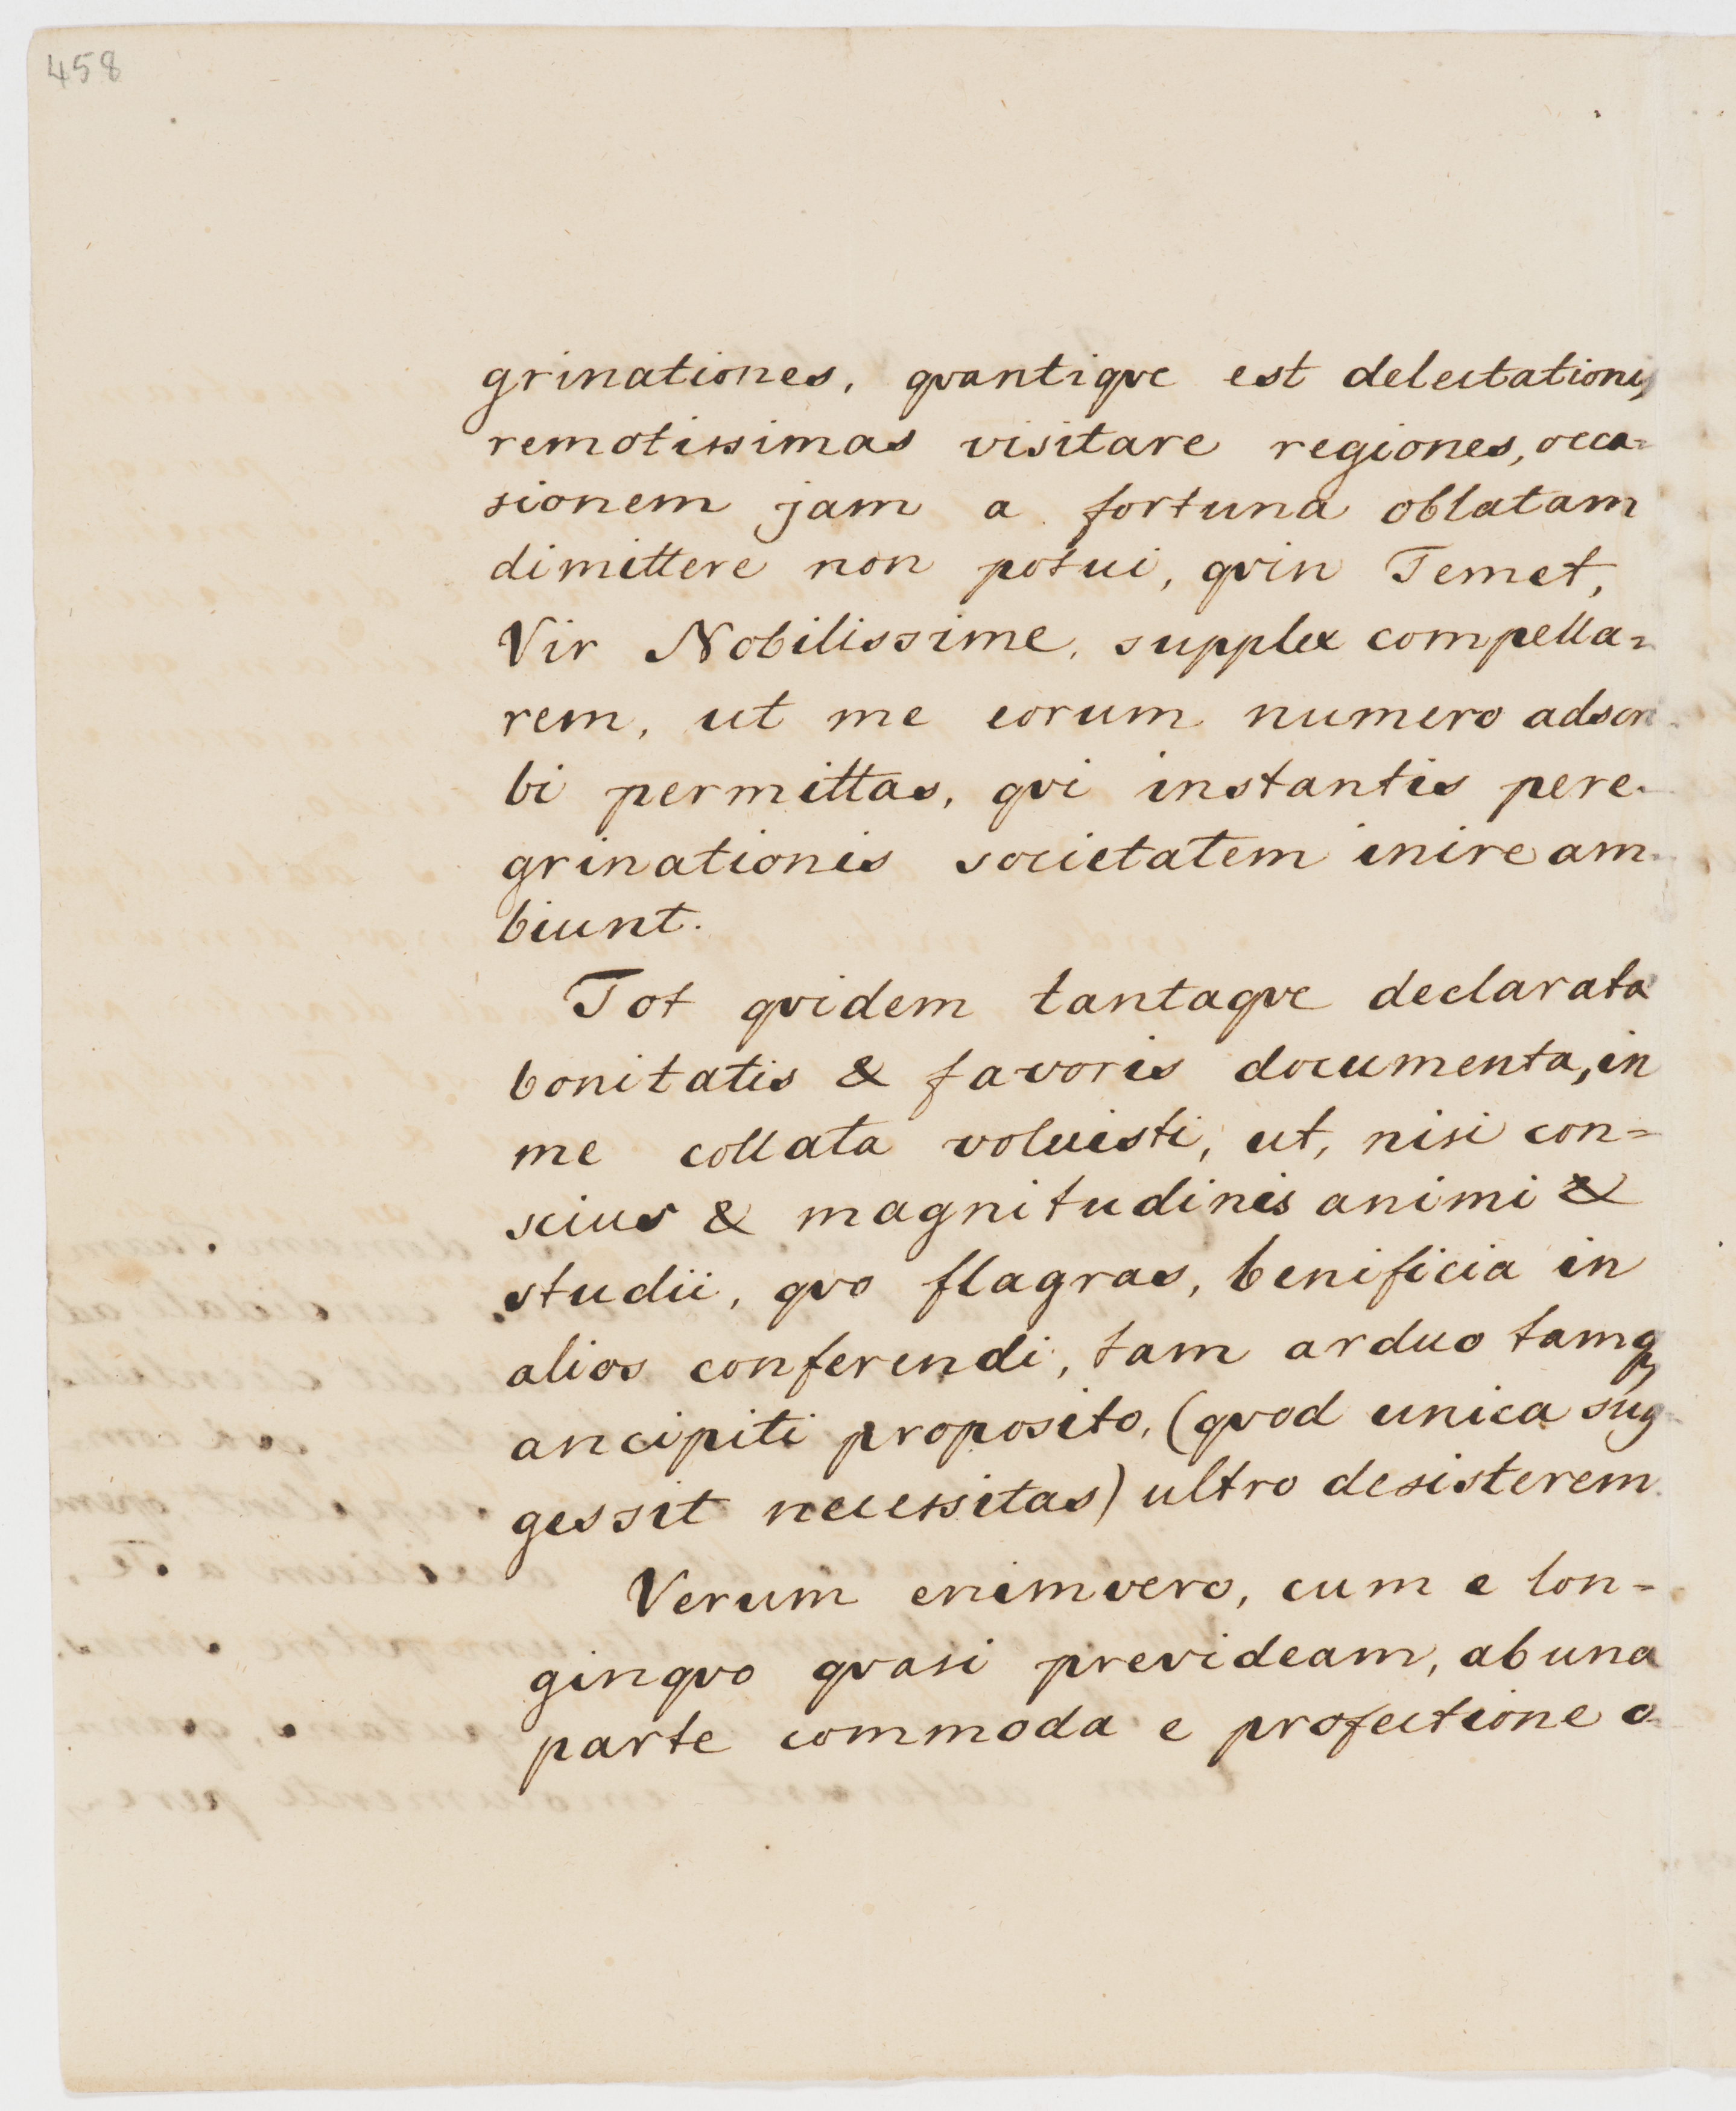 458
grinationes, qvantiqve est delectationis
remotissimas visitare regiones, occa=
sionem jam a fortuna oblatam
dimittere non potui, qvin Temet,
Vir Nobilissime, supplex compella=
rem, ut me eorum numero adscri
bi permittas, qvi instantis pere-
grinationis societatem inire am-
biunt.
Tot qvidem tantaqve declarata
bonitatis & favoris documenta, in
me collata voluisti, ut, nisi con=
scius & magnitudinis animi &
studii, qvo flagras, benificia in
alios conferendi, tam arduo tamq
ancipiti proposito, (qvod unica sug
gessit necessitas) ultro desisterem.
Verum enimvero, cum e lon=
ginqvo qvasi prevideam, ab una
parte commoda e profectione o